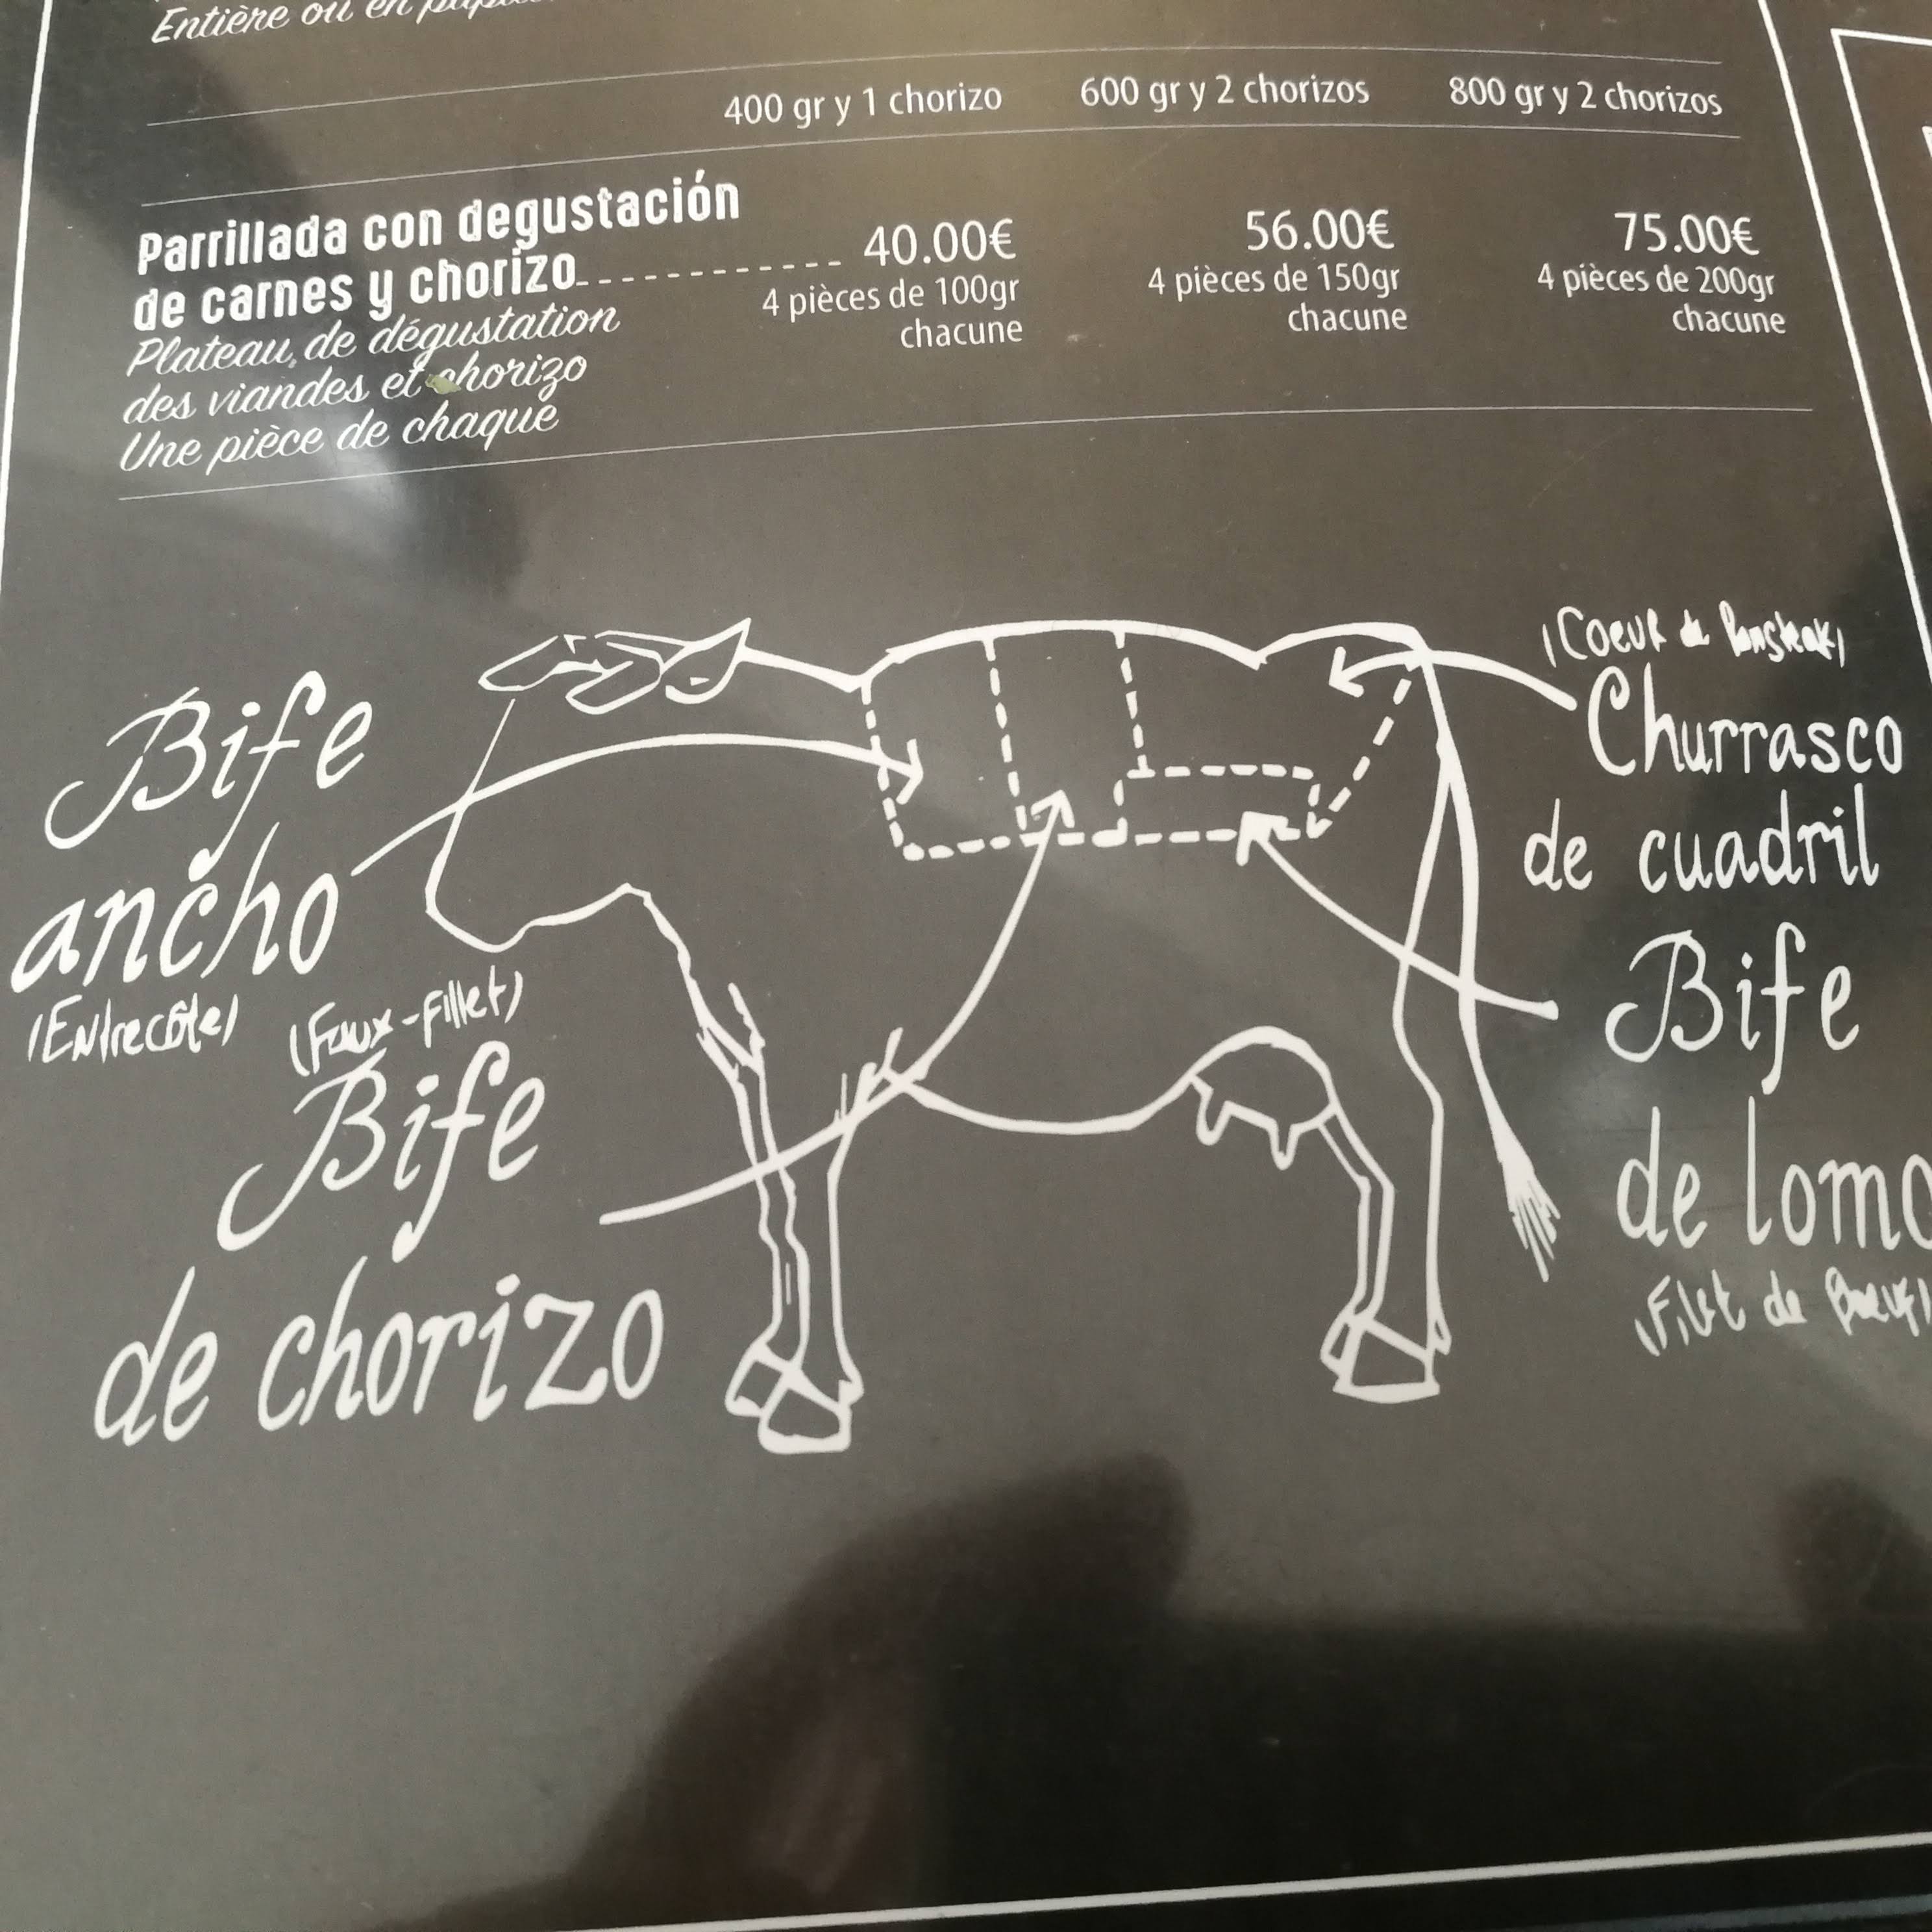 Entière ou en
400 gr y 1 chorizo 600 gr y 2 chorizos 800 gr y 2 chorizos
Parrillada con degustación
de carnes y chorizo------------ 40.00€ 56.00€ 75.00€
4 pièces de 100gr 4 pièces de 150gr 4 pièces de 200gr
chacune chacune chacune
Plateau de dégustation
des viandes et chorizo
Une pièce de chaque
(Coeur de
Churrasco
de cuadril
Bife
ancho
(Entrecôte)
(Faux-fillet)
Bife
de chorizo
Bife
de lomo
(Filet de Boeuf)